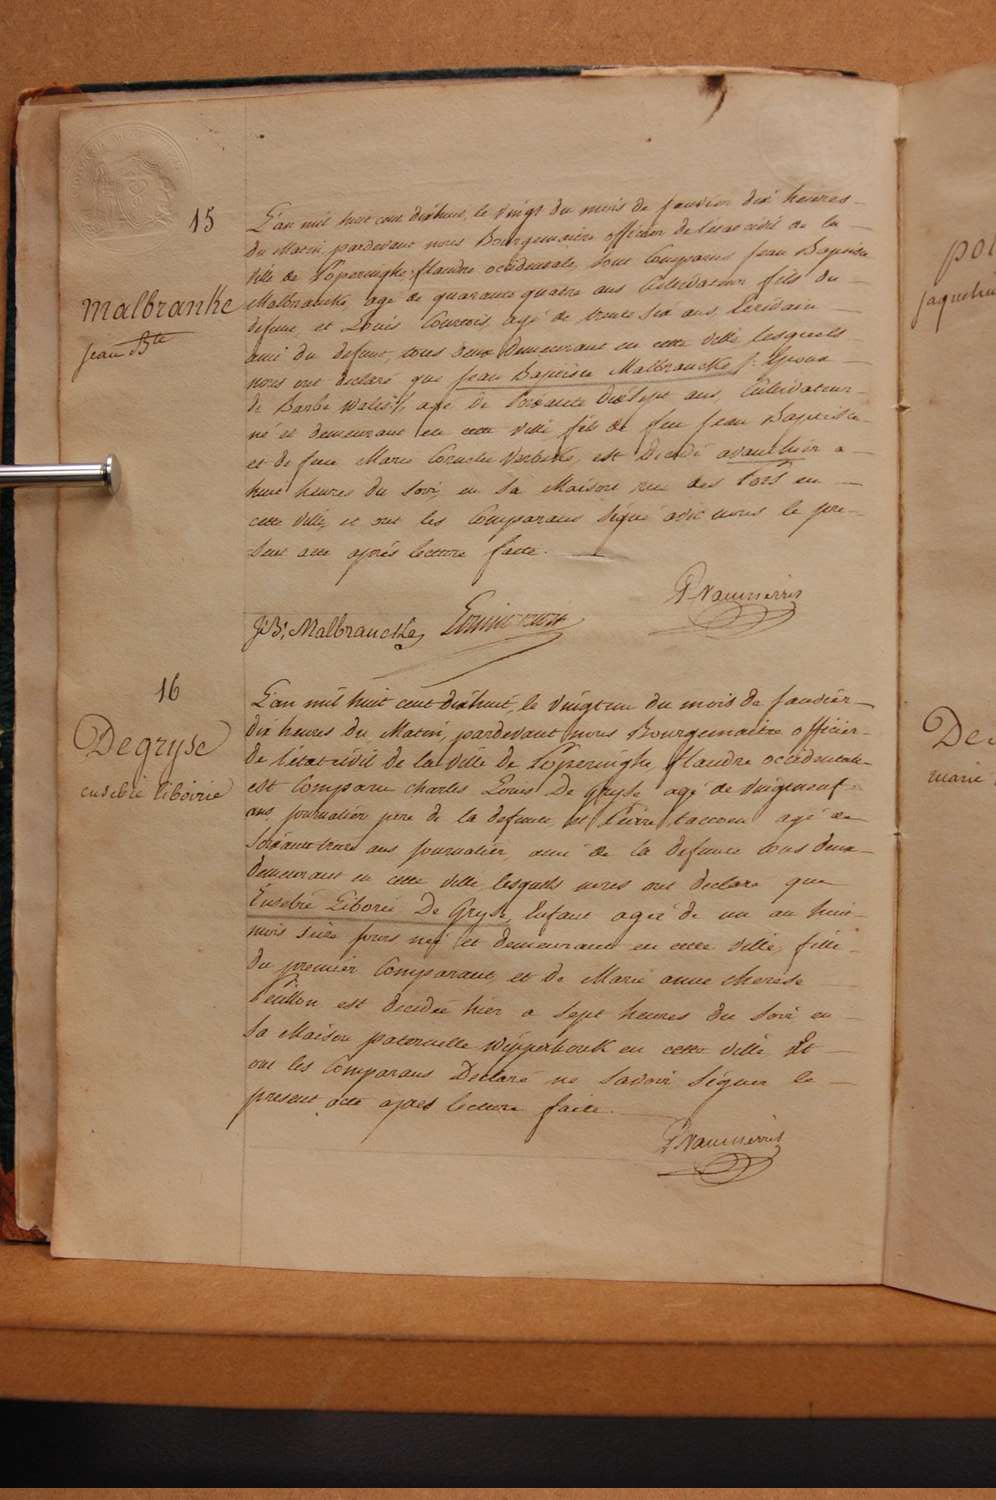 15
Malbranke
Jean Bte
L'an mil huit cent dixhuit, le vingt du mois de janvier dix heures
du Matin, pardevant nous Bourgemaitre officier de l'état civil de la
ville de Poperinghe, flandre occidentale, sont Comparus Jean Baptiste
Malbrancke, agé de quarante quatre ans Cultivateur fils du
defunt, et Louis Courtois, agé de trente six ans, Ecrivain
ami du defunt, tous deux demeurant en cette ville lesquels
nous ont declaré que Jean Baptiste Malbrancke, Epoux
de Barbe agé de Soixante dixsept ans, Cultivateur
né et demeurant en cette ville fils de feu Jean Baptiste
et de feue Marie Cornelie est Decédé avant hier a
huit heures du soir, en sa Maison rue des en
cette ville, et ont les Comparans Signé avec nous le pre-
sent acte après lecture faite.
J:B: Malbrancke
16
Degryse
eusebie liboirie
L'an mil huit cent dixhuit, le vingtun du mois de Janvier
dix heures du Matin, pardevant nous Bourgemaitre officier
de l'état civil de la ville de Poperinghe, flandre occidentale
est Comparu Charles Louis De Gryse agé de Vingtneuf
ans, journalier pere de la defunte, et Pierre agé de
Soixante treize ans journalier, ami de la defunte tous deux
demeurant en cette ville, lesquels nous ont declaré que
Eusebie Liborie De Gryse, Enfant agée de un an huit
mois jours née et demeurante en cette ville, fille
du premier Comparant, et de Marie anne therese
est decedée hier a sept heures du soir en
sa Maison paternelle Wipperhoek en cette ville Et
ont les Comparans Declaré ne savoir Signer le
present acte après lecture faite.
De
marie